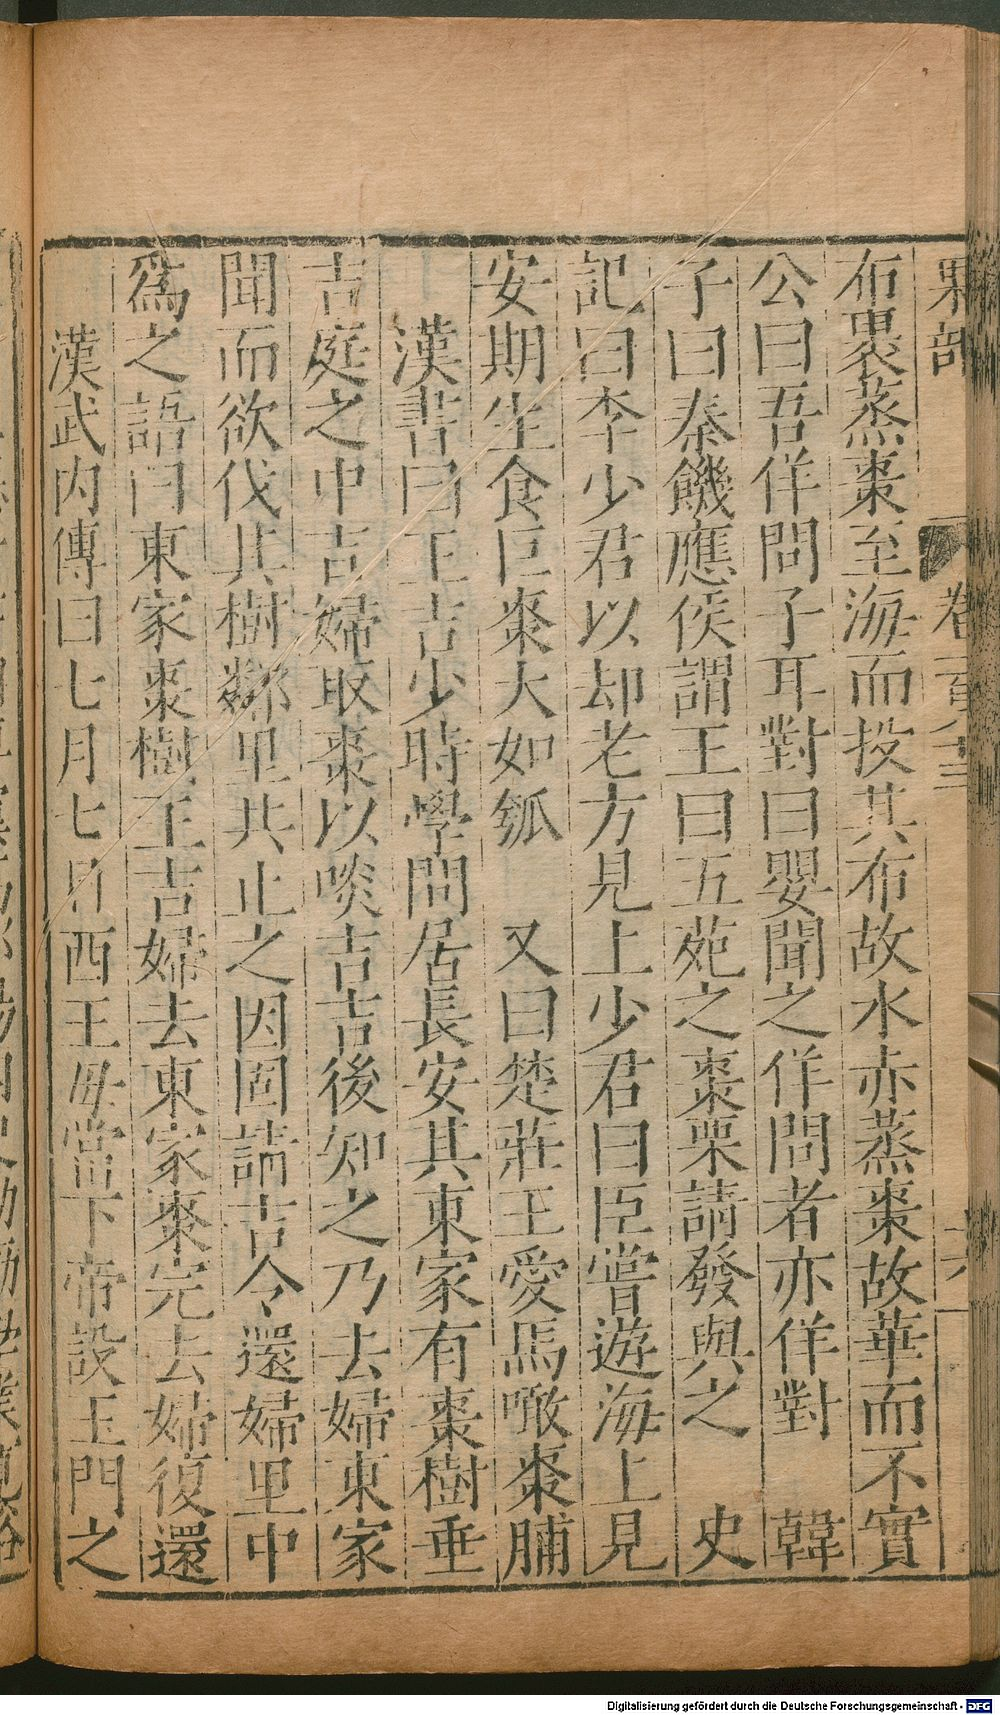 果部 卷一百八十三 六
布裹蒸棗至海而投其布故水赤蒸棗故華而不實
公曰吾佯問子耳對曰嬰聞之佯問者亦佯對 韓
子曰秦饑應侯謂王曰五苑之棗栗請發與之 史
記曰李少君以却老方見上少君曰臣嘗遊海上見
安期生食巨棗大如瓠 又曰楚莊王愛馬噉棗脯
漢書曰王吉少時學問居長安其東家有棗樹垂
吉庭之中吉婦取棗以啖吉吉後知之乃去婦東家
聞而欲伐其樹鄰里共止之因固請吉令還婦里中
為之語曰東家棗樹王吉婦去東家棗完去婦復還
漢武内傳曰七月七日西王母當下帝設玉門之
Digitalisierung gefördert durch die Deutsche Forschungsgemeinschaft - DFG